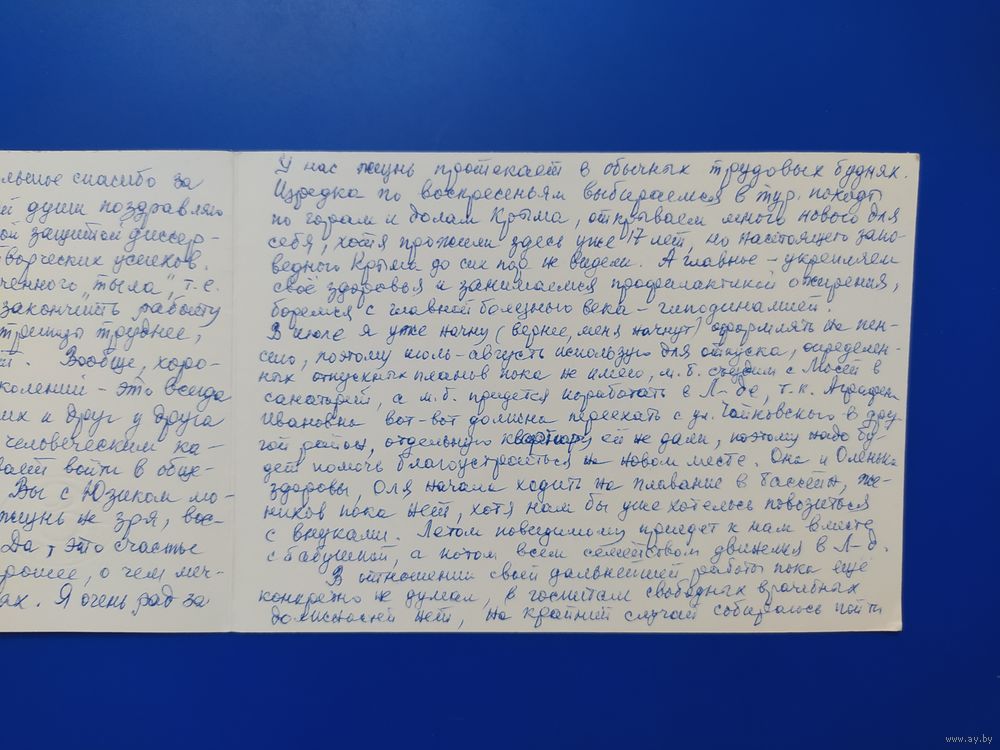 льшое спасибо за
й души поздравляю
ой защитой диссер-
творческих успехов.
ченного "тыла", т.е.
закончить работу
труднее,
й. Вообще, хоро-
колений - это всегда
их и друг у друга
человеческим ка-
вает войти в обще-
Вы с Юзиком мо-
жизнь не зря, вос-
Да, это счастье
рошее, о чем меч-
ах. Я очень рад за
У нас жизнь протекает в обычных трудовых буднях.
Изредка по воскресеньям выбираемся в тур. походы
по горам и долам Крыма, открываем много нового для
себя, хотя прожили здесь уже 17 лет, но настоящего запо-
ведного Крыма до сих пор не видели. А главное - укрепляем
своё здоровья и занимаемся профилактикой ожирения,
боремся с главной болезнью века - гиподинамией.
В июле я уже начну (вернее, меня начнут) оформлять на пен-
сию, поэтому июль-август использую для отпуска, определен-
ных отпускных планов пока не имею, м.б. съездим с Люсей в
санаторий, а м.б. придется поработать в Л-де, т.к. Аграфена
Ивановна вот-вот должна переехать с ул. Чайковского в дру-
гой район, отдельную квартиру ей не дали, поэтому надо бу-
дет помочь благоустроиться на новом месте. Она и Оленька
здоровы, Оля начала ходить на плавание в бассейн, же-
нихов пока нет, хотя нам бы уже хотелось повозиться
с внуками. Летом повидимому приедет к нам вместе
с бабушкой, а потом всем семейством двинемся в Л-д.
В отношении своей дальнейшей работы пока ещё
конкретно не думал, в госпитале свободных врачебных
должностей нет, на крайний случай собираюсь пойти
www.ay.by